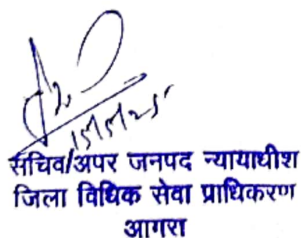 15/5/25
सचिव/अपर जनपद न्यायाधीश
जिला विधिक सेवा प्राधिकरण
आगरा